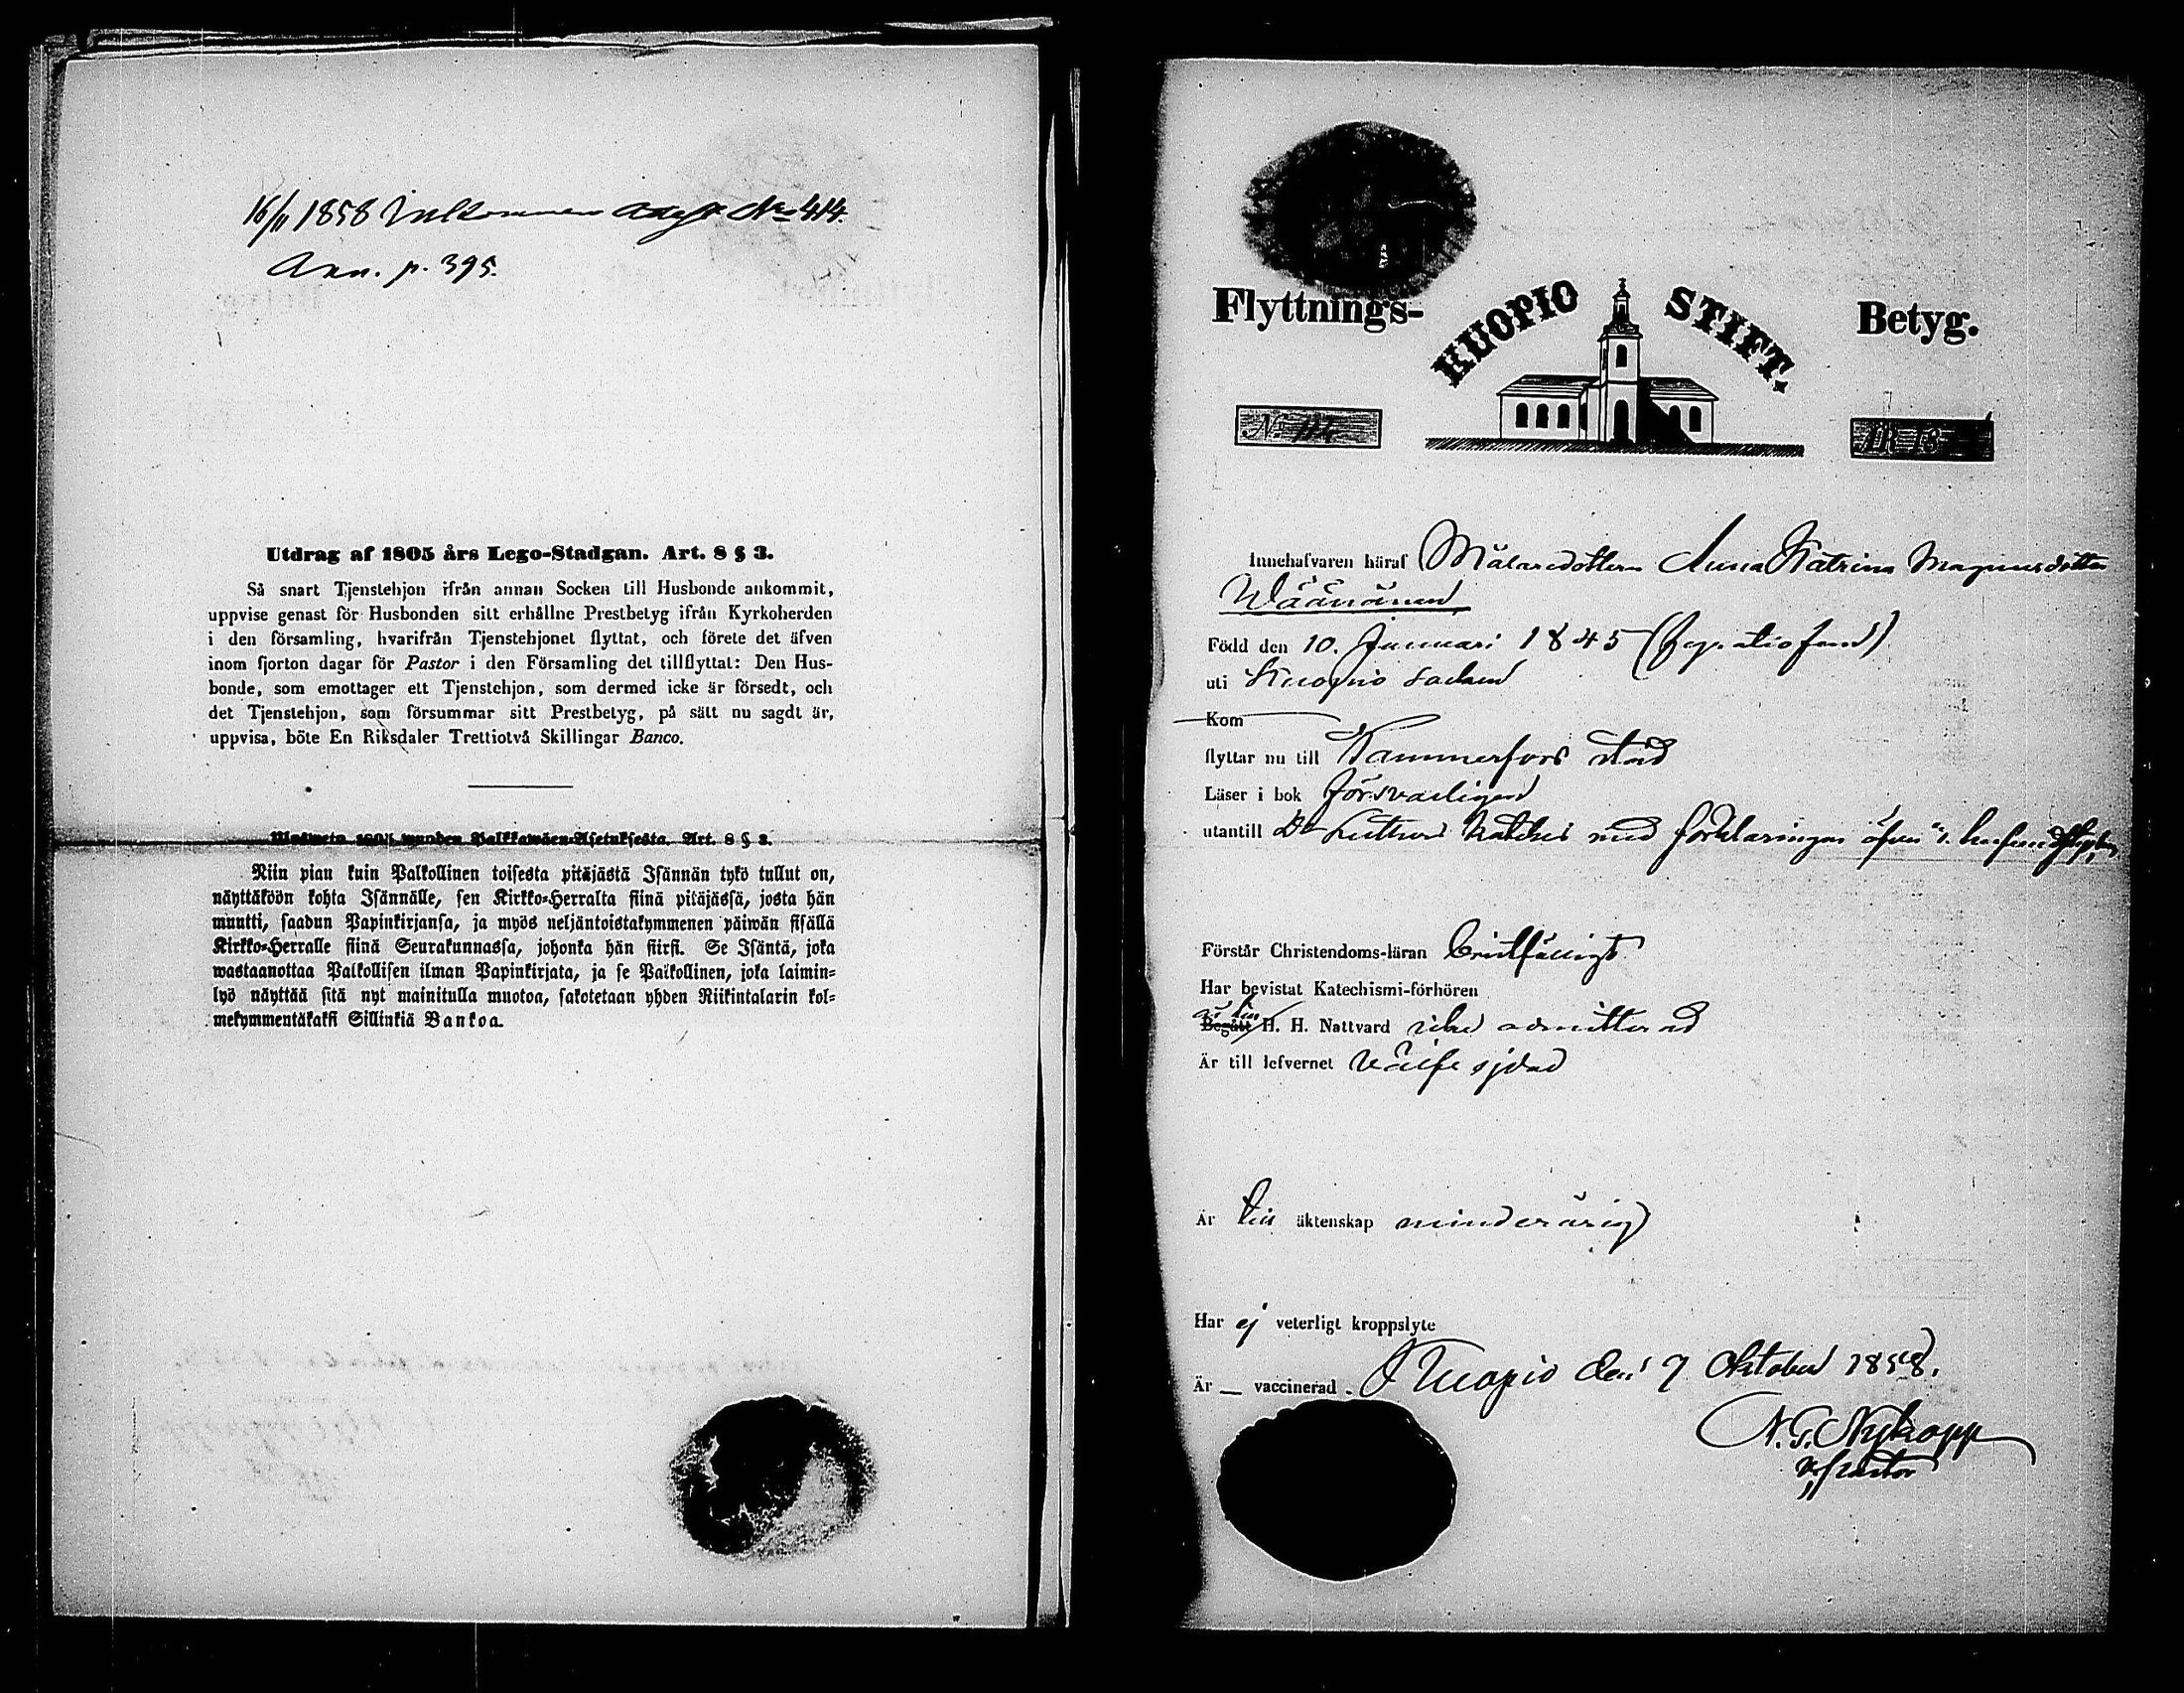 16/11 1858 Inkommen N:o 414.
Ann. p. 395.
Utdrag af 1805 års Lego-Stadgan. Art. 8 § 3.
Så snart Tjenstehjon ifrån annan Socken till Husbonde ankommit,
uppvise genast för Husbonden sitt erhållne Prestbetyg ifrån Kyrkoherden
i den församling, hvarifrån Tjenstehjonet flyttat, och förete det äfven
inom fjorton dagar för Pastor i den Församling det tillflyttat: Den Hus-
bonde, som emottager ett Tjenstehjon, som dermed icke är försedt, och
det Tjenstehjon, som försummar sitt Prestbetyg, på sätt nu sagdt är,
uppvisa, böte En Riksdaler Trettiotvå Skillingar Banco.
1805 wuoden Palkkawäen-Asetuksesta. Art. 8 § 3.
Niin pian kuin Palkollinen toisesta pitäjästä Isännän tykö tullut on,
näyttäköön kohta Isännälle, sen Kirkko-Herralta siinä pitäjässä, josta hän
muutti, saadun Papinkirjansa, ja myös neljäntoistakymmenen päiwän sisällä
Kirkko-Herralle siinä Seurakunnassa, johonka hän siirsi. Se Isäntä, joka
wastaanottaa Palkollisen ilman Papinkirjata, ja se Palkollinen, joka laimin-
lyö näyttää sitä nyt mainitulla muotoa, sakotetaan yhden Riikintalarin kol-
mekymmentäkaksi Sillinkiä Bankoa.
Flyttnings- KUOPIO STIFT. Betyg.
No ÅR 18
Innehafvaren häraf Målaredottern Anna Katrina Magnusdotter
Wäänänen
Född den 10. Januari 1845
uti Kuopio socken
Kom
flyttar nu till Tammerfors stad
Läser i bok försvarligen
utantill Dr Luthers Kateches med förklaringen äfven
Förstår Christendoms-läran bristfälligt
Har bevistat Katechismi-förhören
är till
Begått H. H. Nattvard icke admitterad
Är till lefvernet välfrejdad
Är till äktenskap minderårig
Har ej veterligt kroppslyte
Är — vaccinerad. Kuopio den 7 Oktober 1858.
N. G. Nykopp
v. pastor